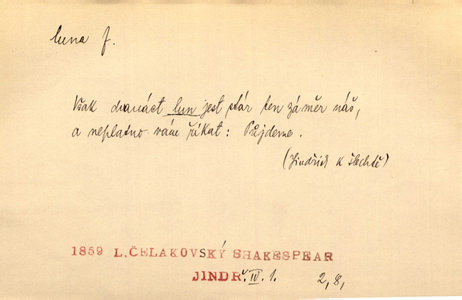 luna f.
Však dvanáct lun jest stár ten záměr náš,
a neplatno vám říkat: Půjdeme.
(Jindřich k šlechtě)
1859 L. ČELAKOVSKÝ SHAKESPEAR
JINDŘ. IV. 1.
2,8,